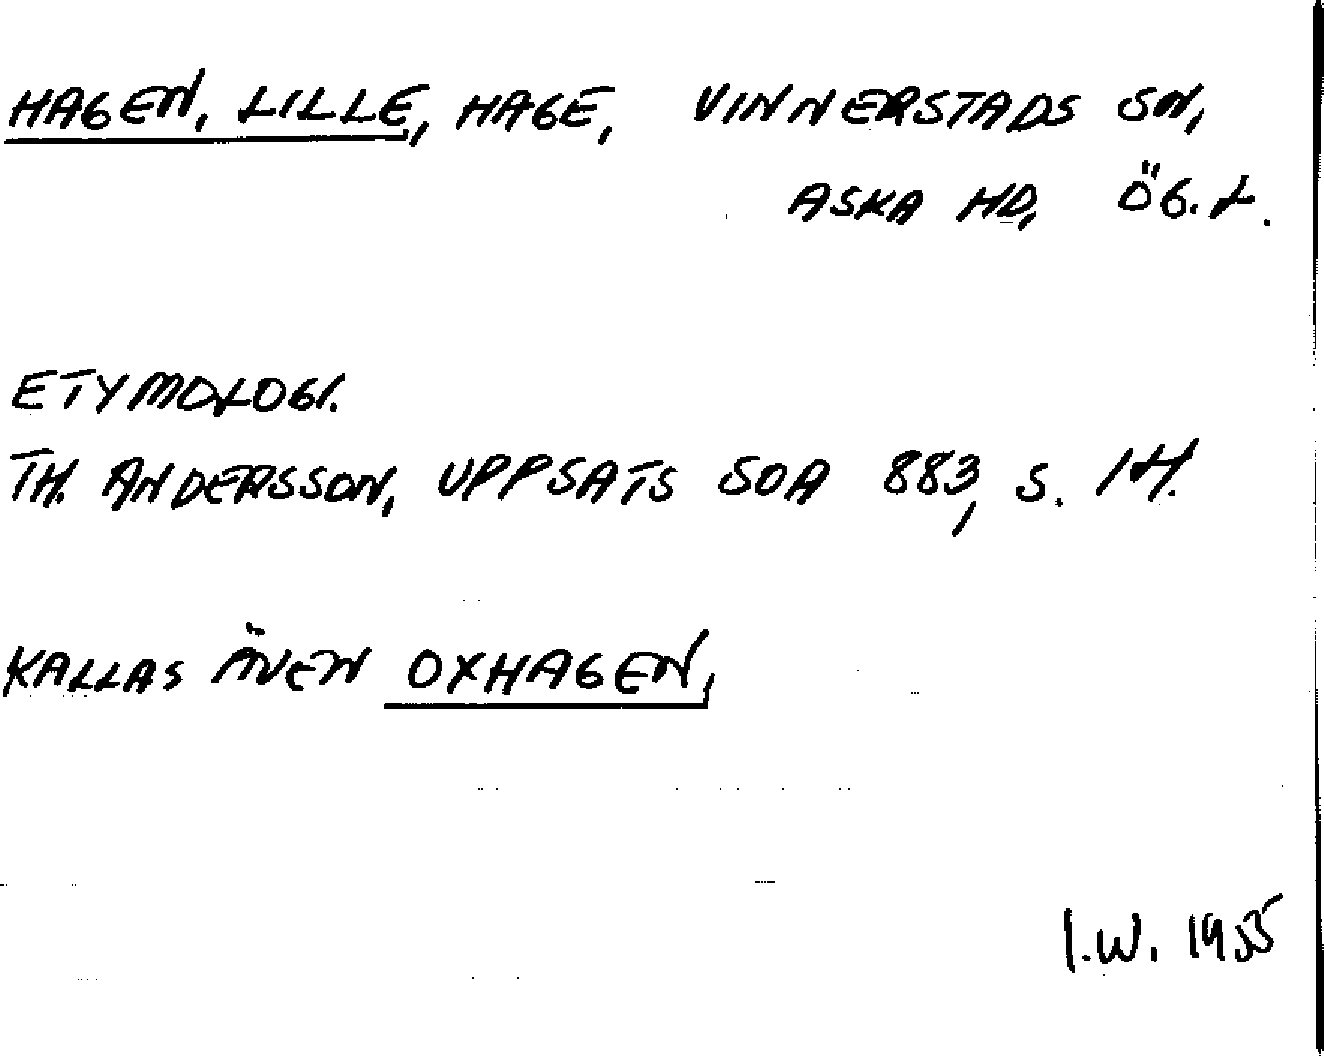 HAGEN, LILLE, HAGE, VINNERSTADS SN,
ASKA HD, ÖG.L.
ETYMOLOGI.
TH. ANDERSSON, UPPSATS SOA 883, S. 14.
KALLAS ÄVEN OXHAGEN,
I.W. 1955